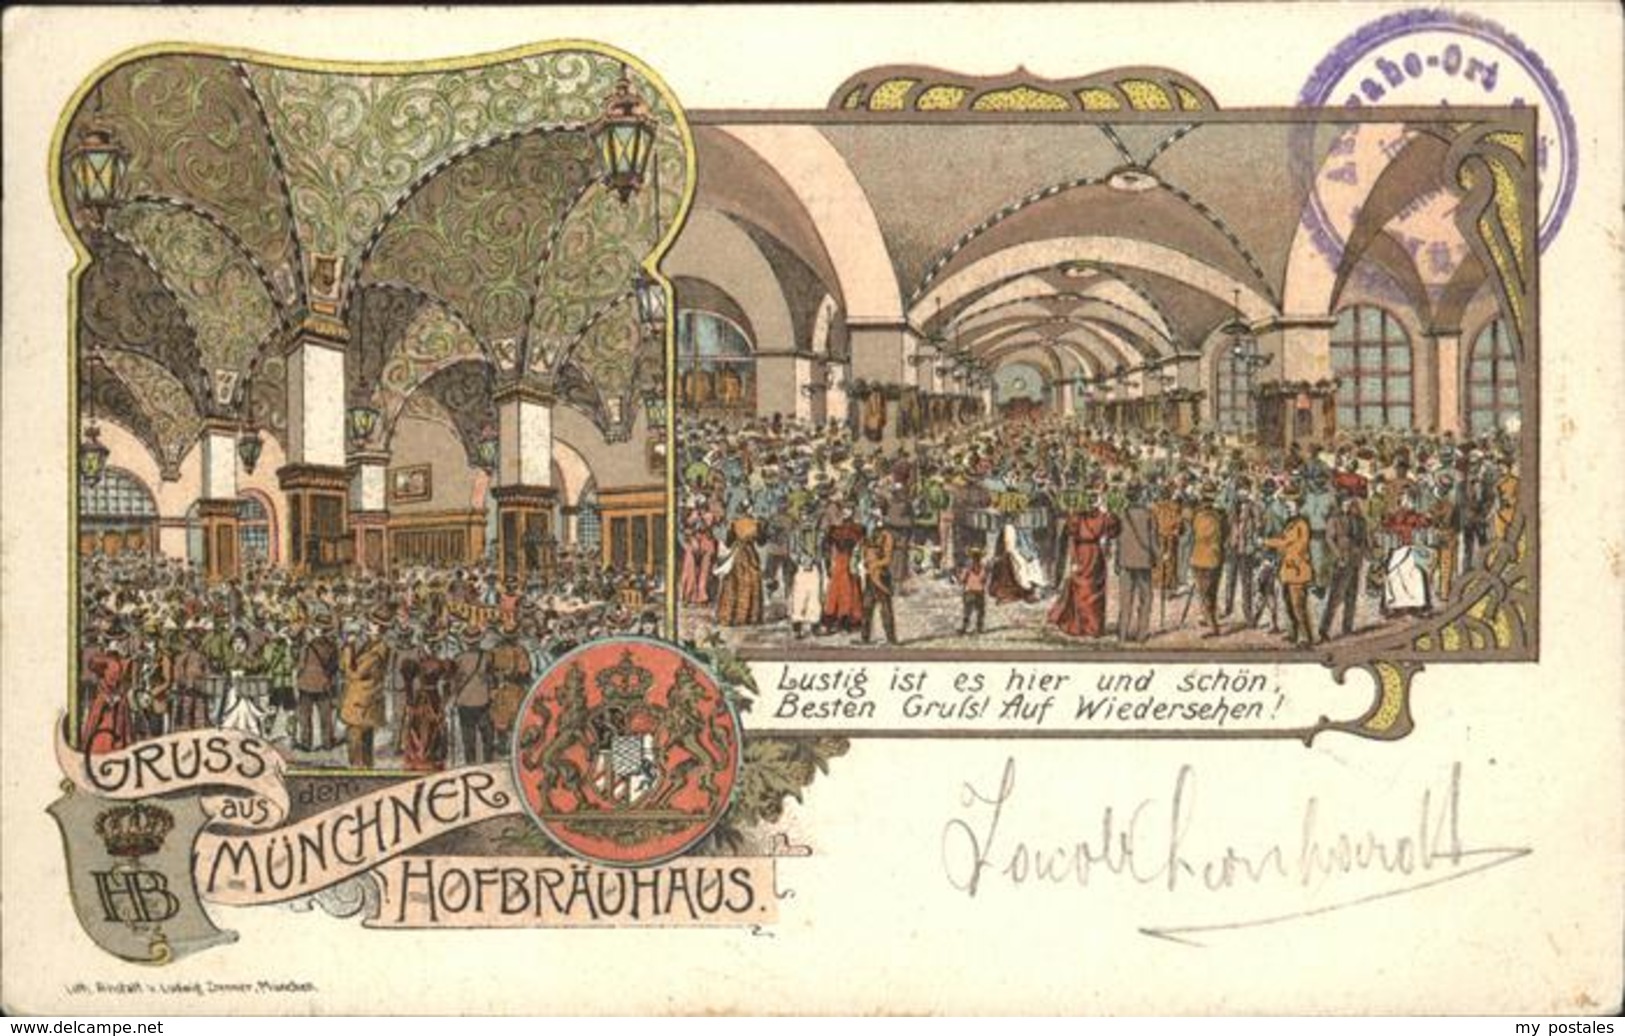 Ausgabe-Ort
Lustig ist es hier und schön,
Besten Gruſs! Auf Wiedersehen!
GRUSS
aus dem
MÜNCHNER
HOFBRÄUHAUS.
HB
Lith. Anstalt v. Ludwig Zrenner, München.
www.delcampe.net
my_postales